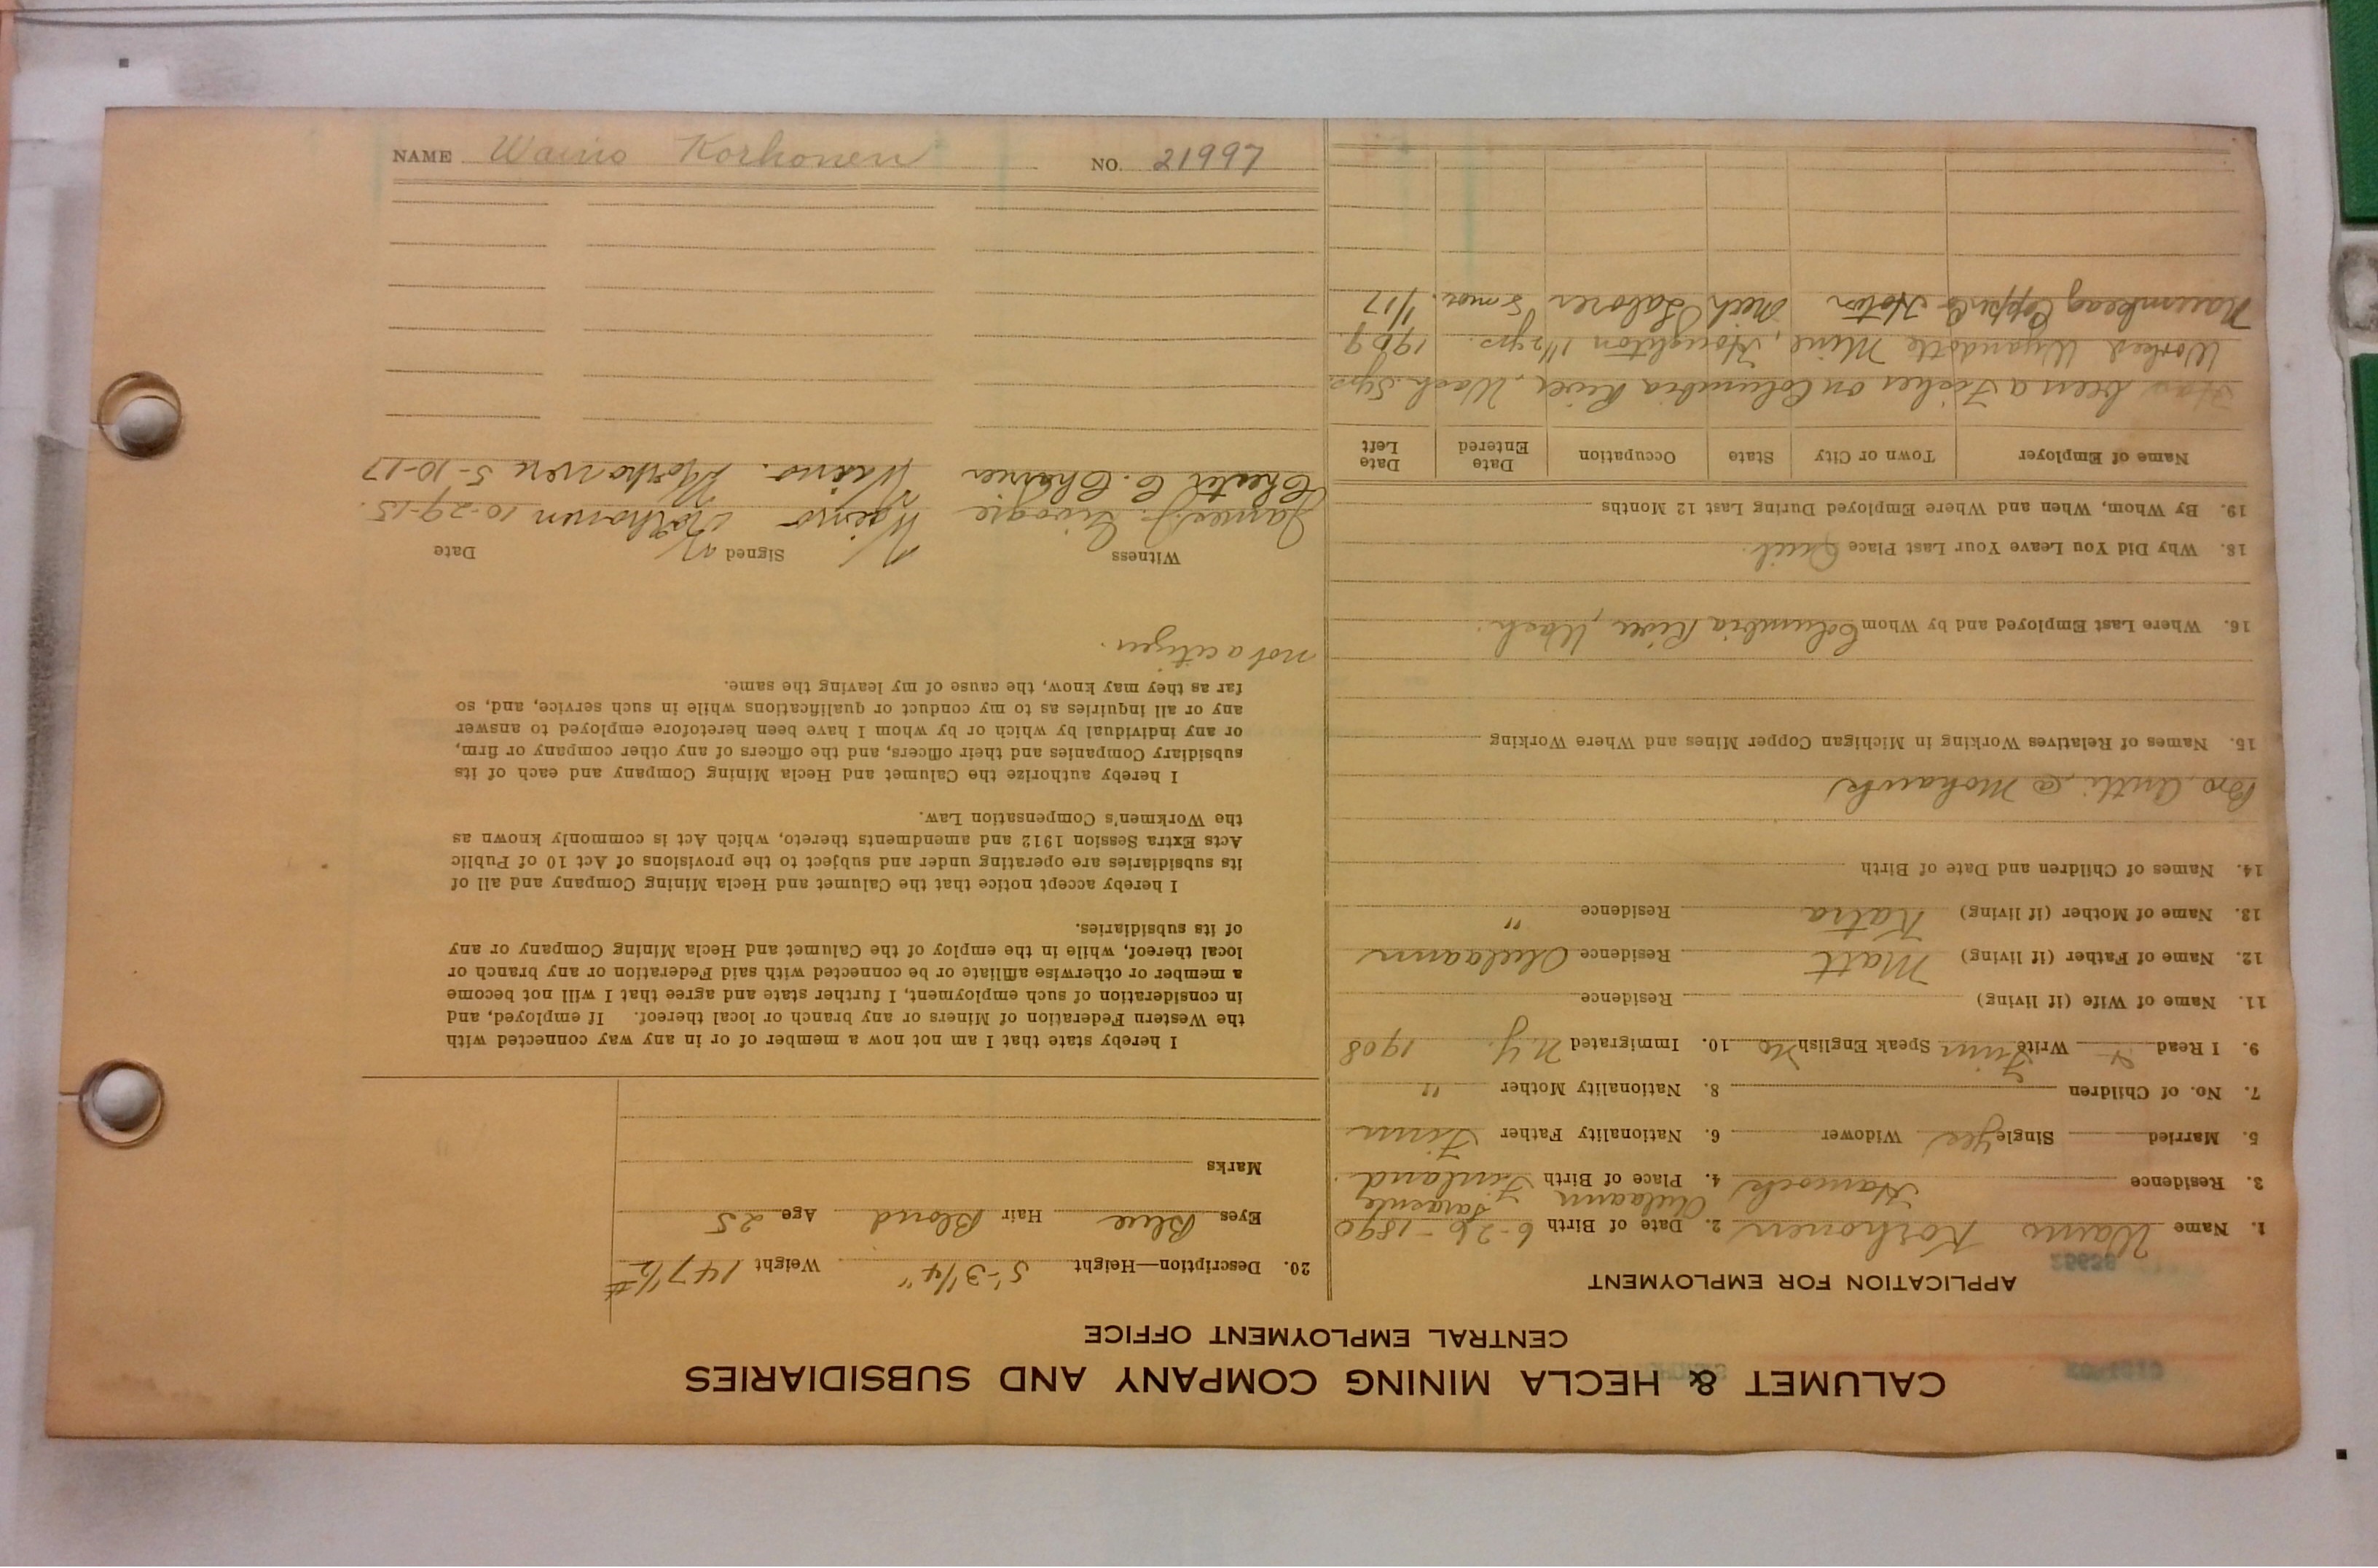 CALUMET & HECLA MINING COMPANY AND SUBSIDIARIES
CENTRAL EMPLOYMENT OFFICE
APPLICATION FOR EMPLOYMENT
1. Name Waino Korhonen 2. Date of Birth 6-26-1890
3. Residence Hancock 4. Place of Birth Finland
5. Married Single yes Widower 6. Nationality Father Finn
7. No. of Children 8. Nationality Mother "
9. I Read Write Finn Speak English No 10. Immigrated N.Y. 1908
11. Name of Wife (if living) Residence
12. Name of Father (if living) Matt Residence
13. Name of Mother (if living) Residence "
14. Names of Children and Date of Birth
Bro, Antti @ Mohawk
15. Names of Relatives Working in Michigan Copper Mines and Where Working
16. Where Last Employed and by Whom Columbia River, Wash.
18. Why Did You Leave Your Last Place Quit.
19. By Whom, When and Where Employed During Last 12 Months
Name of Employer Town or City State Occupation Date Entered Date Left
Has been a Fisher on Columbia River, Wash. 5 yrs.
Worked Wyandotte Mine, Houghton 1 1/2 yrs. 1909.
Naumkeag Copper Co Hoton Mich Laborer 5 mos. 1/17
20. Description—Height 5'-3 1/4" Weight 147 1/2 #
Eyes Blue Hair Blond Age 25
Marks
I hereby state that I am not now a member of or in any way connected with
the Western Federation of Miners or any branch or local thereof. If employed, and
in consideration of such employment, I further state and agree that I will not become
a member or otherwise affiliate or be connected with said Federation or any branch or
local thereof, while in the employ of the Calumet and Hecla Mining Company or any
of its subsidiaries.
I hereby accept notice that the Calumet and Hecla Mining Company and all of
its subsidiaries are operating under and subject to the provisions of Act 10 of Public
Acts Extra Session 1912 and amendments thereto, which Act is commonly known as
the Workmen's Compensation Law.
I hereby authorize the Calumet and Hecla Mining Company and each of its
subsidiary Companies and their officers, and the officers of any other company or firm,
or any individual by which or by whom I have been heretofore employed to answer
any or all inquiries as to my conduct or qualifications while in such service, and, so
far as they may know, the cause of my leaving the same.
not a citizen.
Witness Signed Date
James J. Waino Korhonen 10-29-15.
Chester C. Waino Korhonen 5-10-17
NAME Waino Korhonen NO. 21997